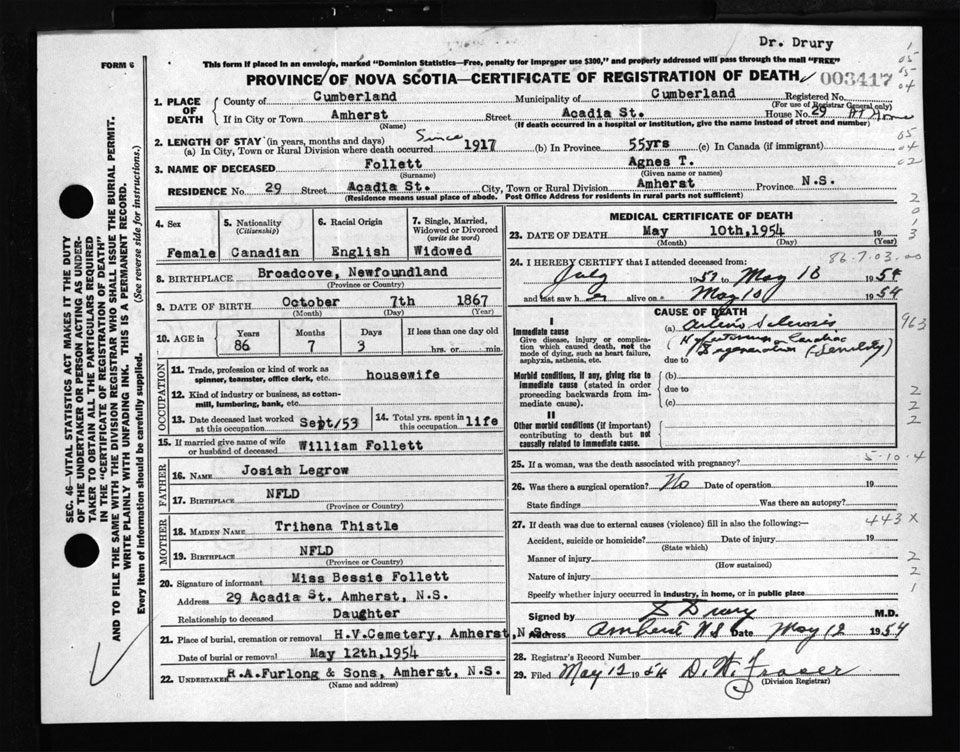 Dr. Drury
FORM 6
This form if placed in an envelope, marked "Dominion Statistics—Free, penalty for improper use $300," and properly addressed will pass through the mail "FREE"
PROVINCE OF NOVA SCOTIA—CERTIFICATE OF REGISTRATION OF DEATH 003417
SEC. 46—VITAL STATISTICS ACT MAKES IT THE DUTY
OF THE UNDERTAKER OR PERSON ACTING AS UNDER-
TAKER TO OBTAIN ALL THE PARTICULARS REQUIRED
IN THE "CERTIFICATE OF REGISTRATION OF DEATH"
AND TO FILE THE SAME WITH THE DIVISION REGISTRAR WHO SHALL ISSUE THE BURIAL PERMIT.
WRITE PLAINLY WITH UNFADING INK. THIS IS A PERMANENT RECORD.
Every item of information should be carefully supplied. (See reverse side for instructions.)
1. PLACE OF DEATH
County of Cumberland Municipality of Cumberland Registered No.
(For use of Registrar General only)
If in City or Town Amherst Street Acadia St. House No. 29 At Home
(Name) (If death occurred in a hospital or institution, give the name instead of street and number)
2. LENGTH OF STAY (in years, months and days)
(a) In City, Town or Rural Division where death occurred Since 1917 (b) In Province 55yrs (c) In Canada (if immigrant)
3. NAME OF DECEASED Follett Agnes T.
(Surname) (Given name or names)
RESIDENCE No. 29 Street Acadia St. City, Town or Rural Division Amherst Province N.S.
(Residence means usual place of abode. Post Office Address for residents in rural parts not sufficient)
4. Sex Female
5. Nationality (Citizenship) Canadian
6. Racial Origin English
7. Single, Married, Widowed or Divorced (write the word) Widowed
8. BIRTHPLACE Broadcove, Newfoundland
(Province or Country)
9. DATE OF BIRTH October 7th 1867
(Month) (Day) (Year)
10. AGE in Years Months Days If less than one day old
86 7 3 hrs. or min.
OCCUPATION
11. Trade, profession or kind of work as housewife
spinner, teamster, office clerk, etc.
12. Kind of industry or business, as cotton-
mill, lumbering, bank, etc.
13. Date deceased last worked at this occupation Sept/53
14. Total yrs. spent in this occupation life
15. If married give name of wife or husband of deceased William Follett
FATHER
16. NAME Josiah Legrow
17. BIRTHPLACE NFLD
(Province or Country)
MOTHER
18. MAIDEN NAME Trihena Thistle
19. BIRTHPLACE NFLD
(Province or Country)
20. Signature of informant Miss Bessie Follett
Address 29 Acadia St. Amherst, N.S.
Relationship to deceased Daughter
21. Place of burial, cremation or removal H.V.Cemetery, Amherst,N.S.
Date of burial or removal May 12th,1954
22. UNDERTAKER R.A.Furlong & Sons, Amherst, N.S.
(Name and address)
MEDICAL CERTIFICATE OF DEATH
23. DATE OF DEATH May 10th,1954 19
(Month) (Day) (Year)
86-7-03-00
24. I HEREBY CERTIFY that I attended deceased from:
July 1953 to May 10 1954
and last saw her alive on May 10 1954
CAUSE OF DEATH
I
Immediate cause (a) Arterio Sclerosis 963
Give disease, injury or complica-
tion which caused death, not the
mode of dying, such as heart failure,
asphyxia, asthenia, etc.
Cardiac
due to Degeneration (Senility)
Morbid conditions, if any, giving rise to
immediate cause (stated in order
proceeding backwards from im-
mediate cause).
(b)
due to
(c)
II
Other morbid conditions (if important)
contributing to death but not
causally related to immediate cause.
5-10-4
25. If a woman, was the death associated with pregnancy?
26. Was there a surgical operation? No Date of operation 19
State findings Was there an autopsy?
27. If death was due to external causes (violence) fill in also the following:— 443X
Accident, suicide or homicide? Date of injury 19
(State which)
Manner of injury
(How sustained)
Nature of injury
Specify whether injury occurred in industry, in home, or in public place
Signed by S Drury M.D.
Address Amherst N.S. Date May 12 1954
28. Registrar's Record Number
29. Filed May 12 1954 D. W. Fraser
(Division Registrar)